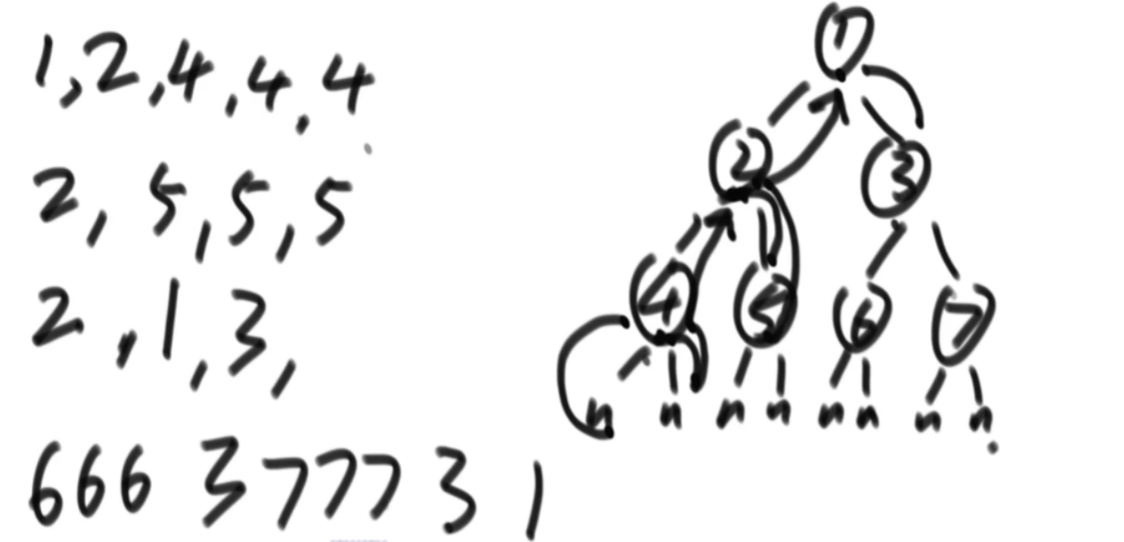 1,2,4,4,4
2,5,5,5
2,1,3,
666 3 777 3 1
1
2 3
4 5 6 7
n n n n n n n n